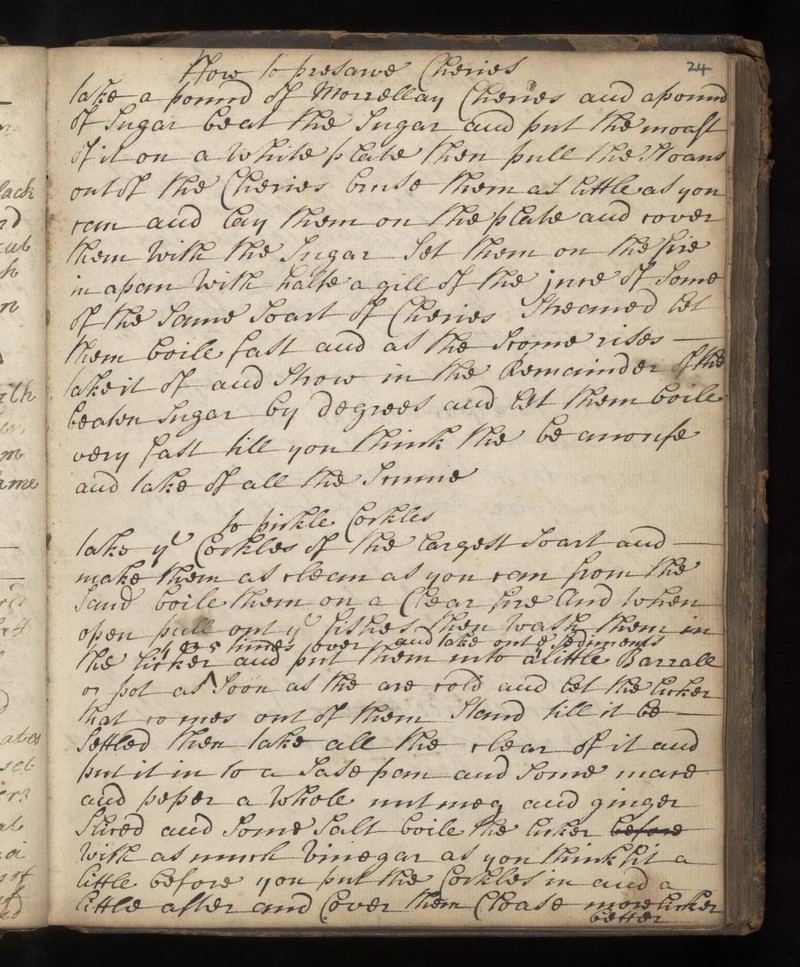 24
How to presarve Cheries
take a pound of Morrellay Cheries and a pound
of Sugar beat the Sugar and put the moast
of it on a White plate then pull the Stoans
out of the Cheries bruse them as little as you
can and lay them on the plate and cover
them With the Sugar Set them on the fire
in a pan With halfe a gill of the juce of Some
of the Same Soart of Cheries Streamed let
them boile fast and as the Scome rises —
take it of and Strow in the Remainder of the
beaten Sugar by degrees and let them boile
very fast till you think the be anoufe
and take of all the Scume
to pickle Cockles
take ye Cockles of the largest Soart and —
make them as clean as you can from the
Sand boile them on a Clear fire And when
open pull out ye fishes then Wash them in
times over and take out ye Sediments
the licker and put them into a little Barrall
or pot as Soon as the are cold and let the licker
that comes out of them Stand till it be —
Settled then take all the clear of it and
put it in to a Sase pan and Some mace
and peper a Whole nutmeg and ginger
Sliced and Some Salt boile the licker before
With as much Vinegar as you think fit a
little before you put the Cockles in and a
little after and Cover them Cloase more licker
better